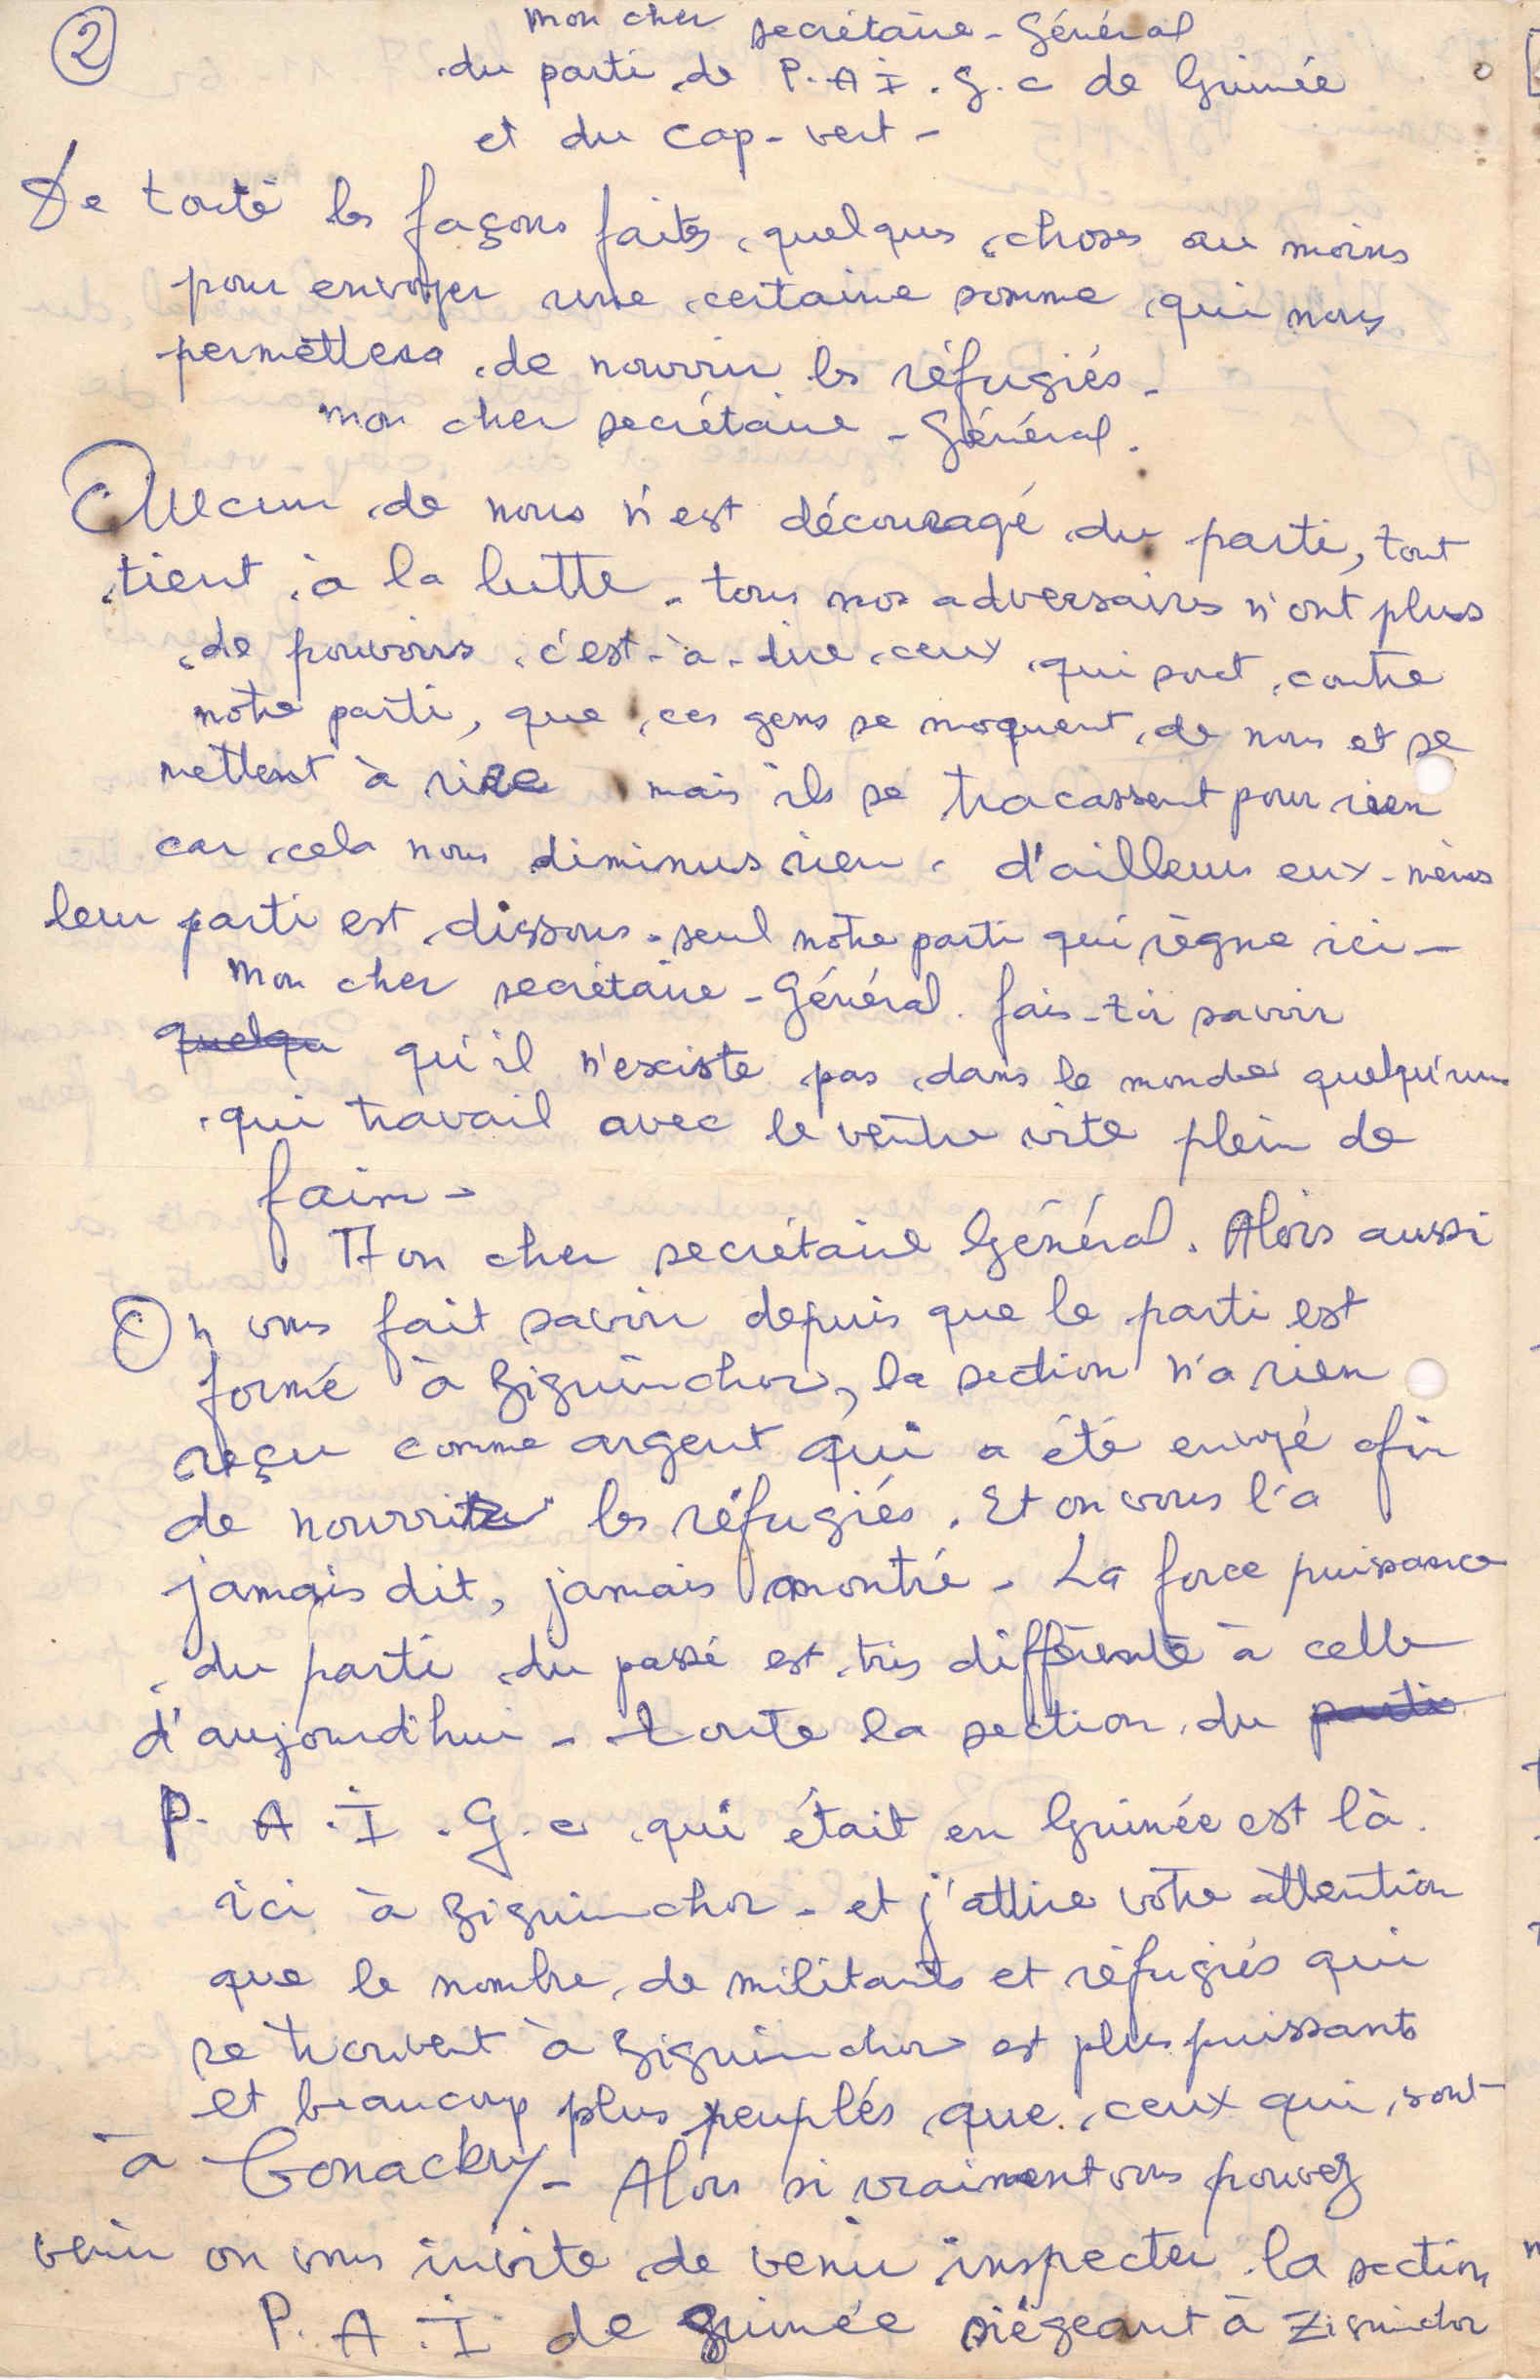 2
mon cher secrétaire - Général
du parti de P. A I. G. c de Guinée
et du cap - vert -
De touté les façons faites quelques choses au moins
pour envoyer une certaine somme qui nous
permettera de nourrir les réfugiés -
mon cher secrétaire - Général.
Aucun de nous n'est découragé du parti, tout
tient à la lutte. tous nos adversaires n'ont plus
de pouvoirs c'est-à-dire ceux qui sont contre
notre parti, que ces gens se moquent de nous et se
mettent à rire mais ils se tracassent pour rien
car cela nous diminus rien. d'ailleurs eux-mêmes
leur parti est dissous. seul notre parti qui règne ici -
Mon cher secrétaire - Général. fais-toi savoir
quelqu qu'il n'existe pas dans le monde quelqu'un
qui travail avec le ventre vite plein de
faim -
Mon cher secrétaire Général. Alors aussi
On vous fait savoir depuis que le parti est
formé à Ziguinchor, la section n'a rien
reçu comme argent qui a été envoyé afin
de nourrir les réfugiés. Et on vous l'a
jamais dit, jamais montré - La force puissance
du parti du passé est très différente à celle
d'aujourd'hui - toute la section du parti
P. A. I. G. c qui était en Guinée est là.
ici à Ziguinchor - et j'attire votre attention
que le nombre de militants et réfugiés qui
se trouvent à Ziguinchor est plus puissants
et beaucoup plus peuplés que ceux qui sont
à Conackry - Alors si vraiment vous pouvez
venir on vous invite de venir inspecter la section
P. A. I de Guinée siégeant à Ziguinchor